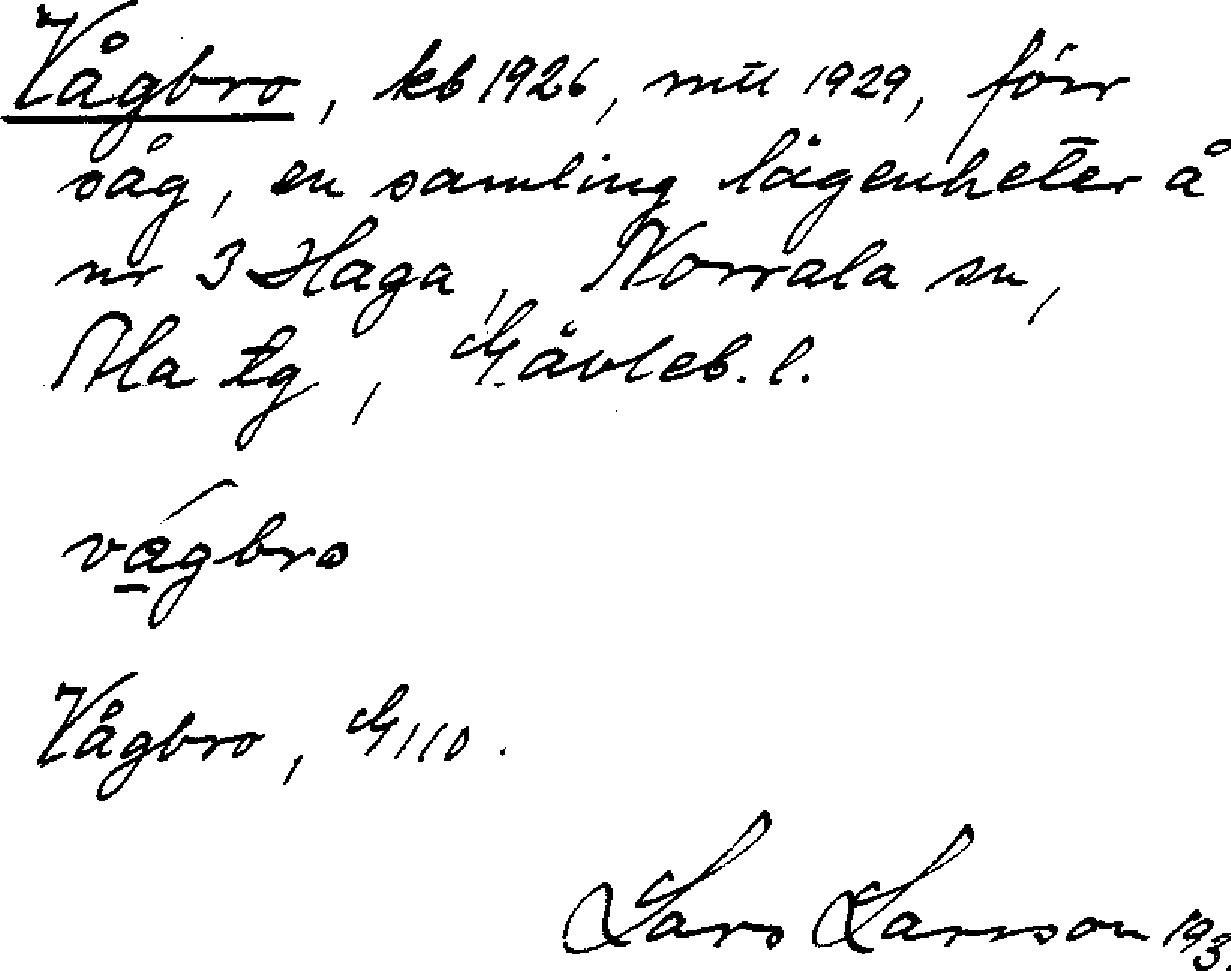 Vågbro, kb 1926, mtl 1929, förr
såg, en samling lägenheter å
nr 3 Haga, Norrala sn,
Ala tg, Gävleb. l.
vågbro
Vågbro, G 110.
Lars Larsson 193